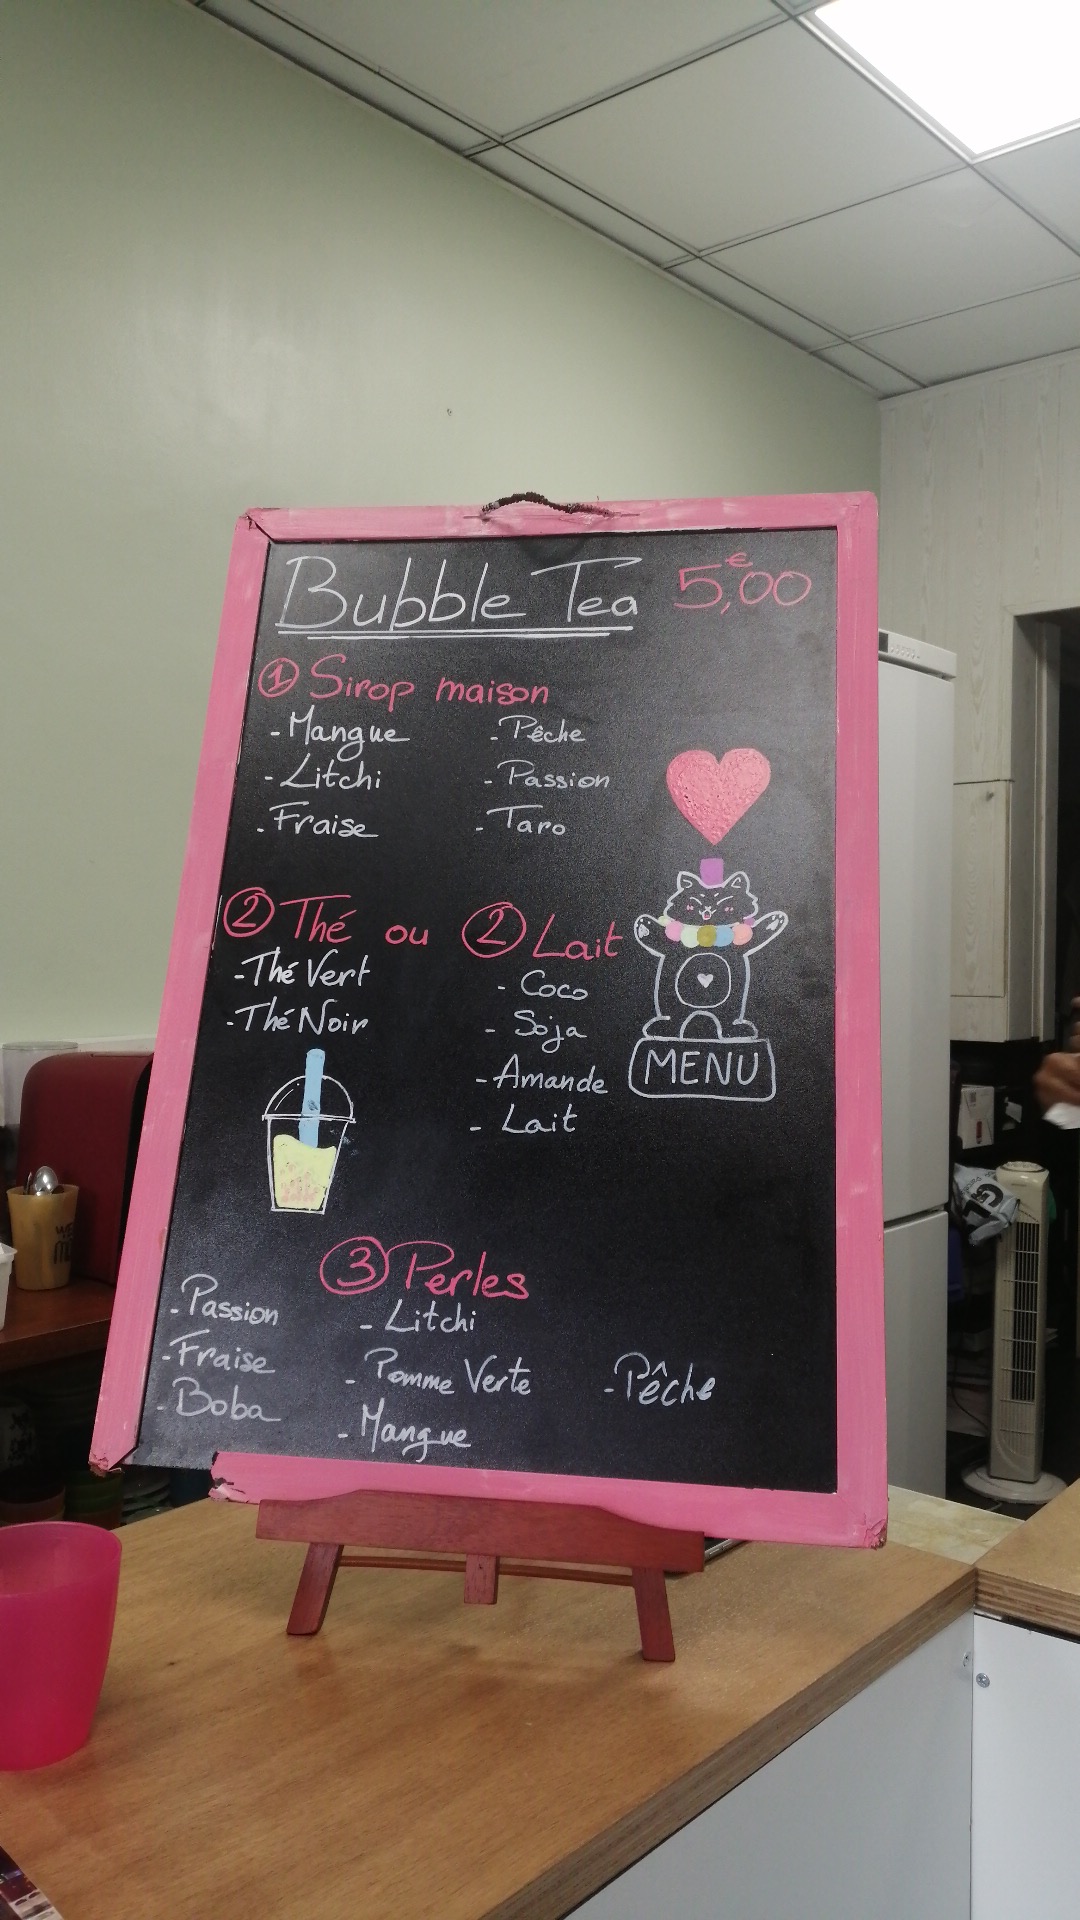 Bubble Tea 5,€00
① Sirop maison
- Mangue
- Litchi
- Fraise
- Pêche
- Passion
- Taro
② Thé ou
- Thé Vert
- Thé Noir
② Lait
- Coco
- Soja
- Amande
- Lait
MENU
③ Perles
- Passion
- Fraise
- Boba
- Litchi
- Pomme Verte
- Mangue
- Pêche